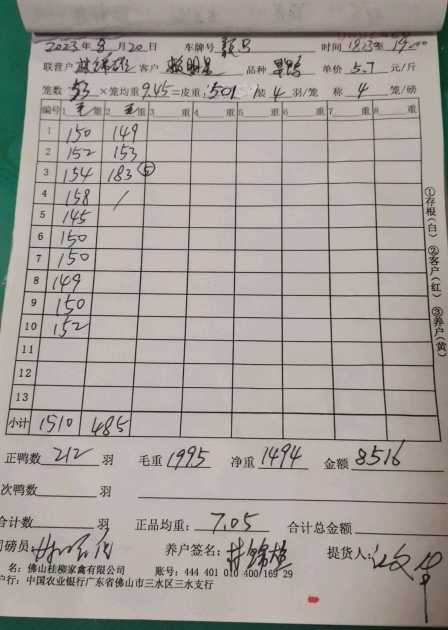 2023年8月20日 车牌号 时间
联营户 客户 品种 单价 5.7 元/斤
笼数 53 ×笼均重 9.45 =皮重: 501 装 4 羽/笼 称 4 笼/磅
编号 1 毛重 2 毛重 3 重 4 重 5 重 6 重 7 重 8 重
1 150 149
2 152 153
3 154 183 ⑤
4 158 /
5 145
6 150
7 150
8 149
9 150
10 152
11
12
13
小计 1510 485
①存根(白) ②客户(红) ③养户(黄)
正鸭数 212 羽 毛重 1995 净重 1494 金额 8516
次鸭数 羽
合计数 羽 正品均重: 7.05 合计总金额
司磅员: 养户签名: 提货人:
名: 佛山桂柳家禽有限公司 账号: 444 401 010 400 169 29
户行: 中国农业银行广东省佛山市三水区三水支行